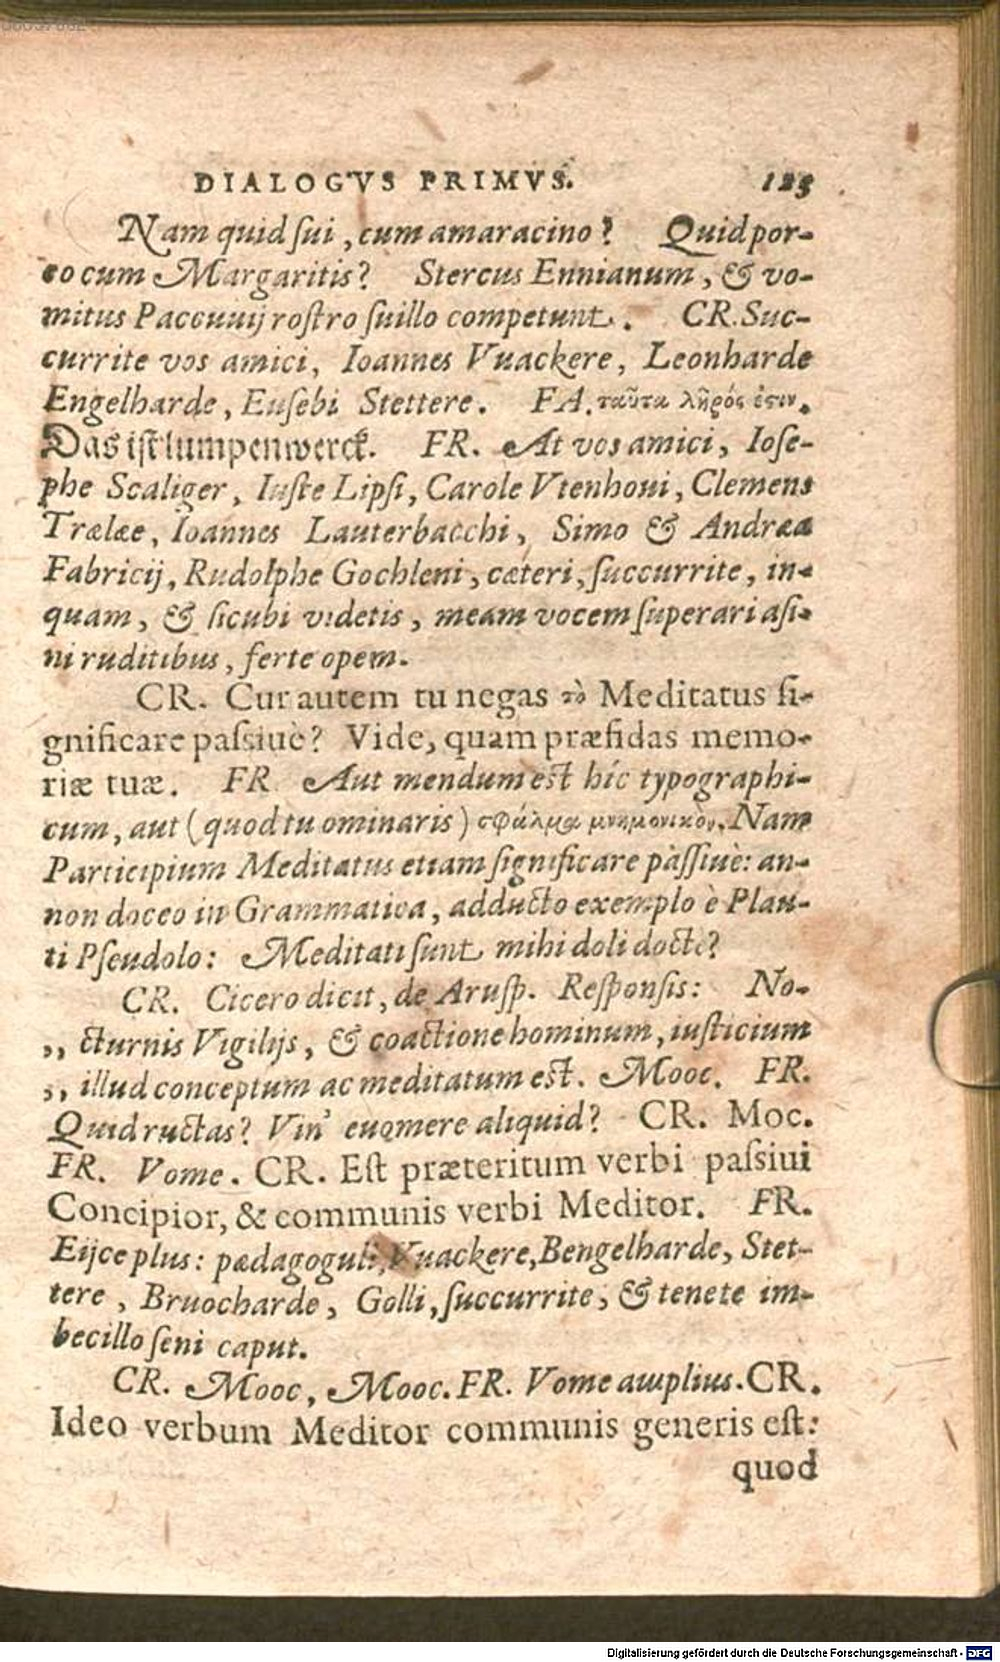 DIALOGVS PRIMVS. 125
Nam quid sui, cum amaracino? Quid por-
co cum Margaritis? Stercus Ennianum, & vo-
mitus Paccuuij rostro suillo competunt. CR. Suc-
currite vos amici, Ioannes Vuackere, Leonharde
Engelharde, Eusebi Stettere. FA. ταῦτα λῆρός ἐστιν.
Das ist lumpenwerck. FR. At vos amici, Iose-
phe Scaliger, Iuste Lipsi, Carole Vtenhoui, Clemens
Trælæe, Ioannes Lauterbacchi, Simo & Andræa
Fabricij, Rudolphe Gochleni, cæteri, succurrite, in-
quam, & sicubi videtis, meam vocem superari asi-
ni ruditibus, ferte opem.
CR. Cur autem tu negas τὸ Meditatus si-
gnificare passiuè? Vide, quam præfidas memo-
riæ tuæ. FR Aut mendum est hîc typographi-
cum, aut (quod tu ominaris) σφάλμα μνημονικὸν. Nam
Participium Meditatus etiam significare pàssiuè: an-
non doceo in Grammatica, adducto exemplo è Plau-
ti Pseudolo: Meditati sunt mihi doli docte?
CR. Cicero dicit, de Arusp. Responsis: No-
,, cturnis Vigilijs, & coactione hominum, iusticium
,, illud conceptum ac meditatum est. Mooc. FR.
Quid ructas? Vin' euomere aliquid? CR. Moc.
FR. Vome. CR. Est præteritum verbi passiui
Concipior, & communis verbi Meditor. FR.
Eijce plus: pædagoguli, Vuackere, Bengelharde, Stet-
tere, Bruocharde, Golli, succurrite, & tenete im-
becillo seni caput.
CR. Mooc, Mooc. FR. Vome amplius. CR.
Ideo verbum Meditor communis generis est:
quod
Digitalisierung gefördert durch die Deutsche Forschungsgemeinschaft - DFG